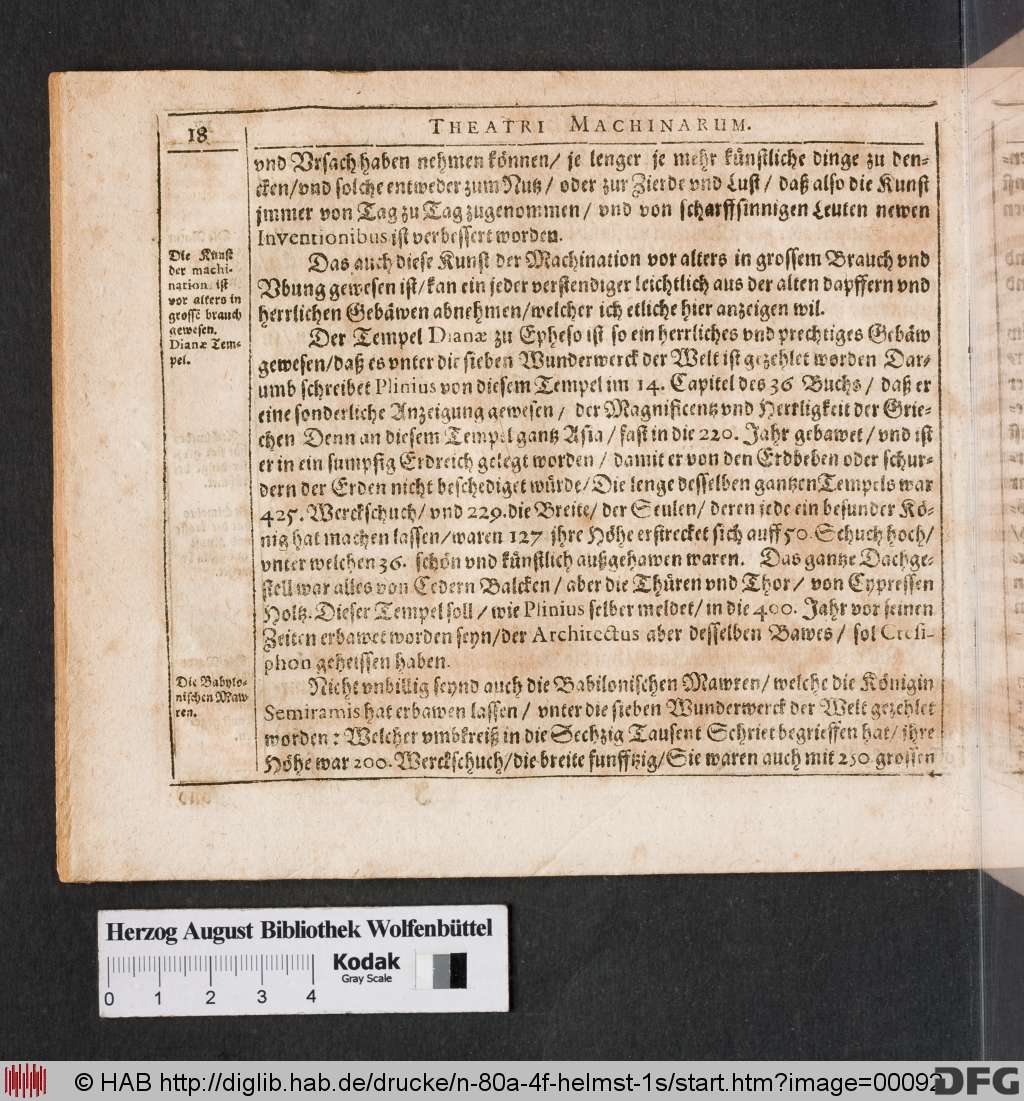 18
THEATRI MACHINARUM.
vnd Vrsach haben nehmen können/ je lenger je mehr künstliche dinge zu den-
cken/vnd solche entweder zum Nutz/ oder zur Zierde vnd Lust/ daß also die Kunst
jmmer von Tag zu Tag zugenommen/ vnd von scharffsinnigen Leuten newen
Inventionibus ist verbessert worden.
Die Kunst
der machi-
nation ist
vor alters in
grosse brauch
gewesen.
Dianæ Tem-
pel.
Das auch diese Kunst der Machination vor alters in grossem Brauch vnd
Vbung gewesen ist/ kan ein jeder verstendiger leichtlich aus der alten dapffern vnd
herrlichen Gebäwen abnehmen/welcher ich etliche hier anzeigen wil.
Der Tempel Dianæ zu Epheso ist so ein herrliches vnd prechtiges Gebäw
gewesen/daß es vnter die sieben Wunderwerck der Welt ist gezehlet worden Dar-
umb schreibet Plinius von diesem Tempel im 14. Capitel des 36 Buchs/ daß er
eine sonderliche Anzeigung gewesen/ der Magnificentz vnd Herrligkeit der Grie-
chen Denn an diesem Tempel gantz Asia/ fast in die 220. Jahr gebawet/ vnd ist
er in ein sumpfig Erdreich gelegt worden/ damit er von den Erdbeben oder schur-
dern der Erden nicht beschediget würde/Die lenge desselben gantzen Tempels war
425. Werckschuch/ vnd 229. die Breite/ der Seulen/ deren jede ein besunder Kö-
nig hat machen lassen/ waren 127 jhre Höhe erstrecket sich auff 50. Schuch hoch/
vnter welchen 36. schön vnd künstlich außgehawen waren. Das gantze Dachge-
stell war alles von Cedern Balcken/ aber die Thüren vnd Thor/ von Cypressen
Holtz. Dieser Tempel soll/ wie Plinius selber meldet/ in die 400. Jahr vor seinen
Zeiten erbawet worden seyn/der Architectus aber desselben Bawes/ sol Ctesi-
phon geheissen haben.
Die Babylo-
nischen Maw
ren.
Nicht vnbillig seynd auch die Babilonischen Mawren/ welche die Königin
Semiramis hat erbawen lassen/ vnter die sieben Wunderwerck der Welt gezehlet
worden: Welcher vmbkreiß in die Sechzig Tausent Schriet begrieffen hat/ jhre
Höhe war 200. Werckschuch/die breite funfftzig/ Sie waren auch mit 250 grossen
Herzog August Bibliothek Wolfenbüttel
Kodak
Gray Scale
0 1 2 3 4
© HAB http://diglib.hab.de/drucke/n-80a-4f-helmst-1s/start.htm?image=00092
DFG